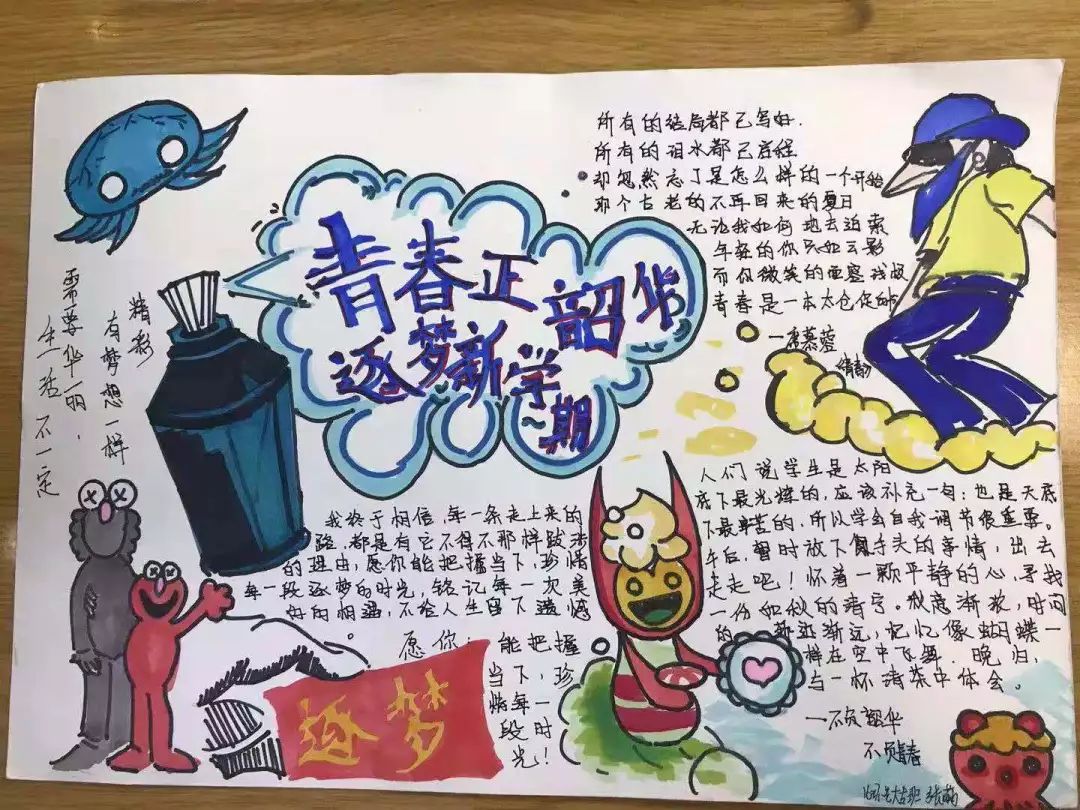 青春正韶华
逐梦新学期
所有的结局都已写好.
所有的泪水都已启程
却忽然忘了是怎么样的一个开始
那个古老的不再回来的夏日
无论我如何地去追索
年轻的你只如云影
而你微笑的面容
青春是一本太仓促的
一席慕蓉
精彩
有梦想一样
需要华丽,
生活不一定
我终于相信,每一条走上来的
路,都是有它不得不那样跋涉
的理由,愿你能把握当下,珍惜
每一段逐梦的时光,铭记每一次美
好的相遇,不给人生留下遗憾
。
愿你 能把握
当下,珍
惜每一
段时
光!
逐梦
人们说学生是太阳
底下最光辉的,应该补充一句:也是天底
下最辛苦的,所以学会自我调节很重要。
午后,暂时放下手头的事情,出去
走走吧!怀着一颗平静的心,寻找
一份如秋的清宁。秋意渐浓,时间
的 渐远,忆忆像蝴蝶一
样在空中飞舞.晚归,
与一杯清茶中体会。
一不负韶华
不负青春